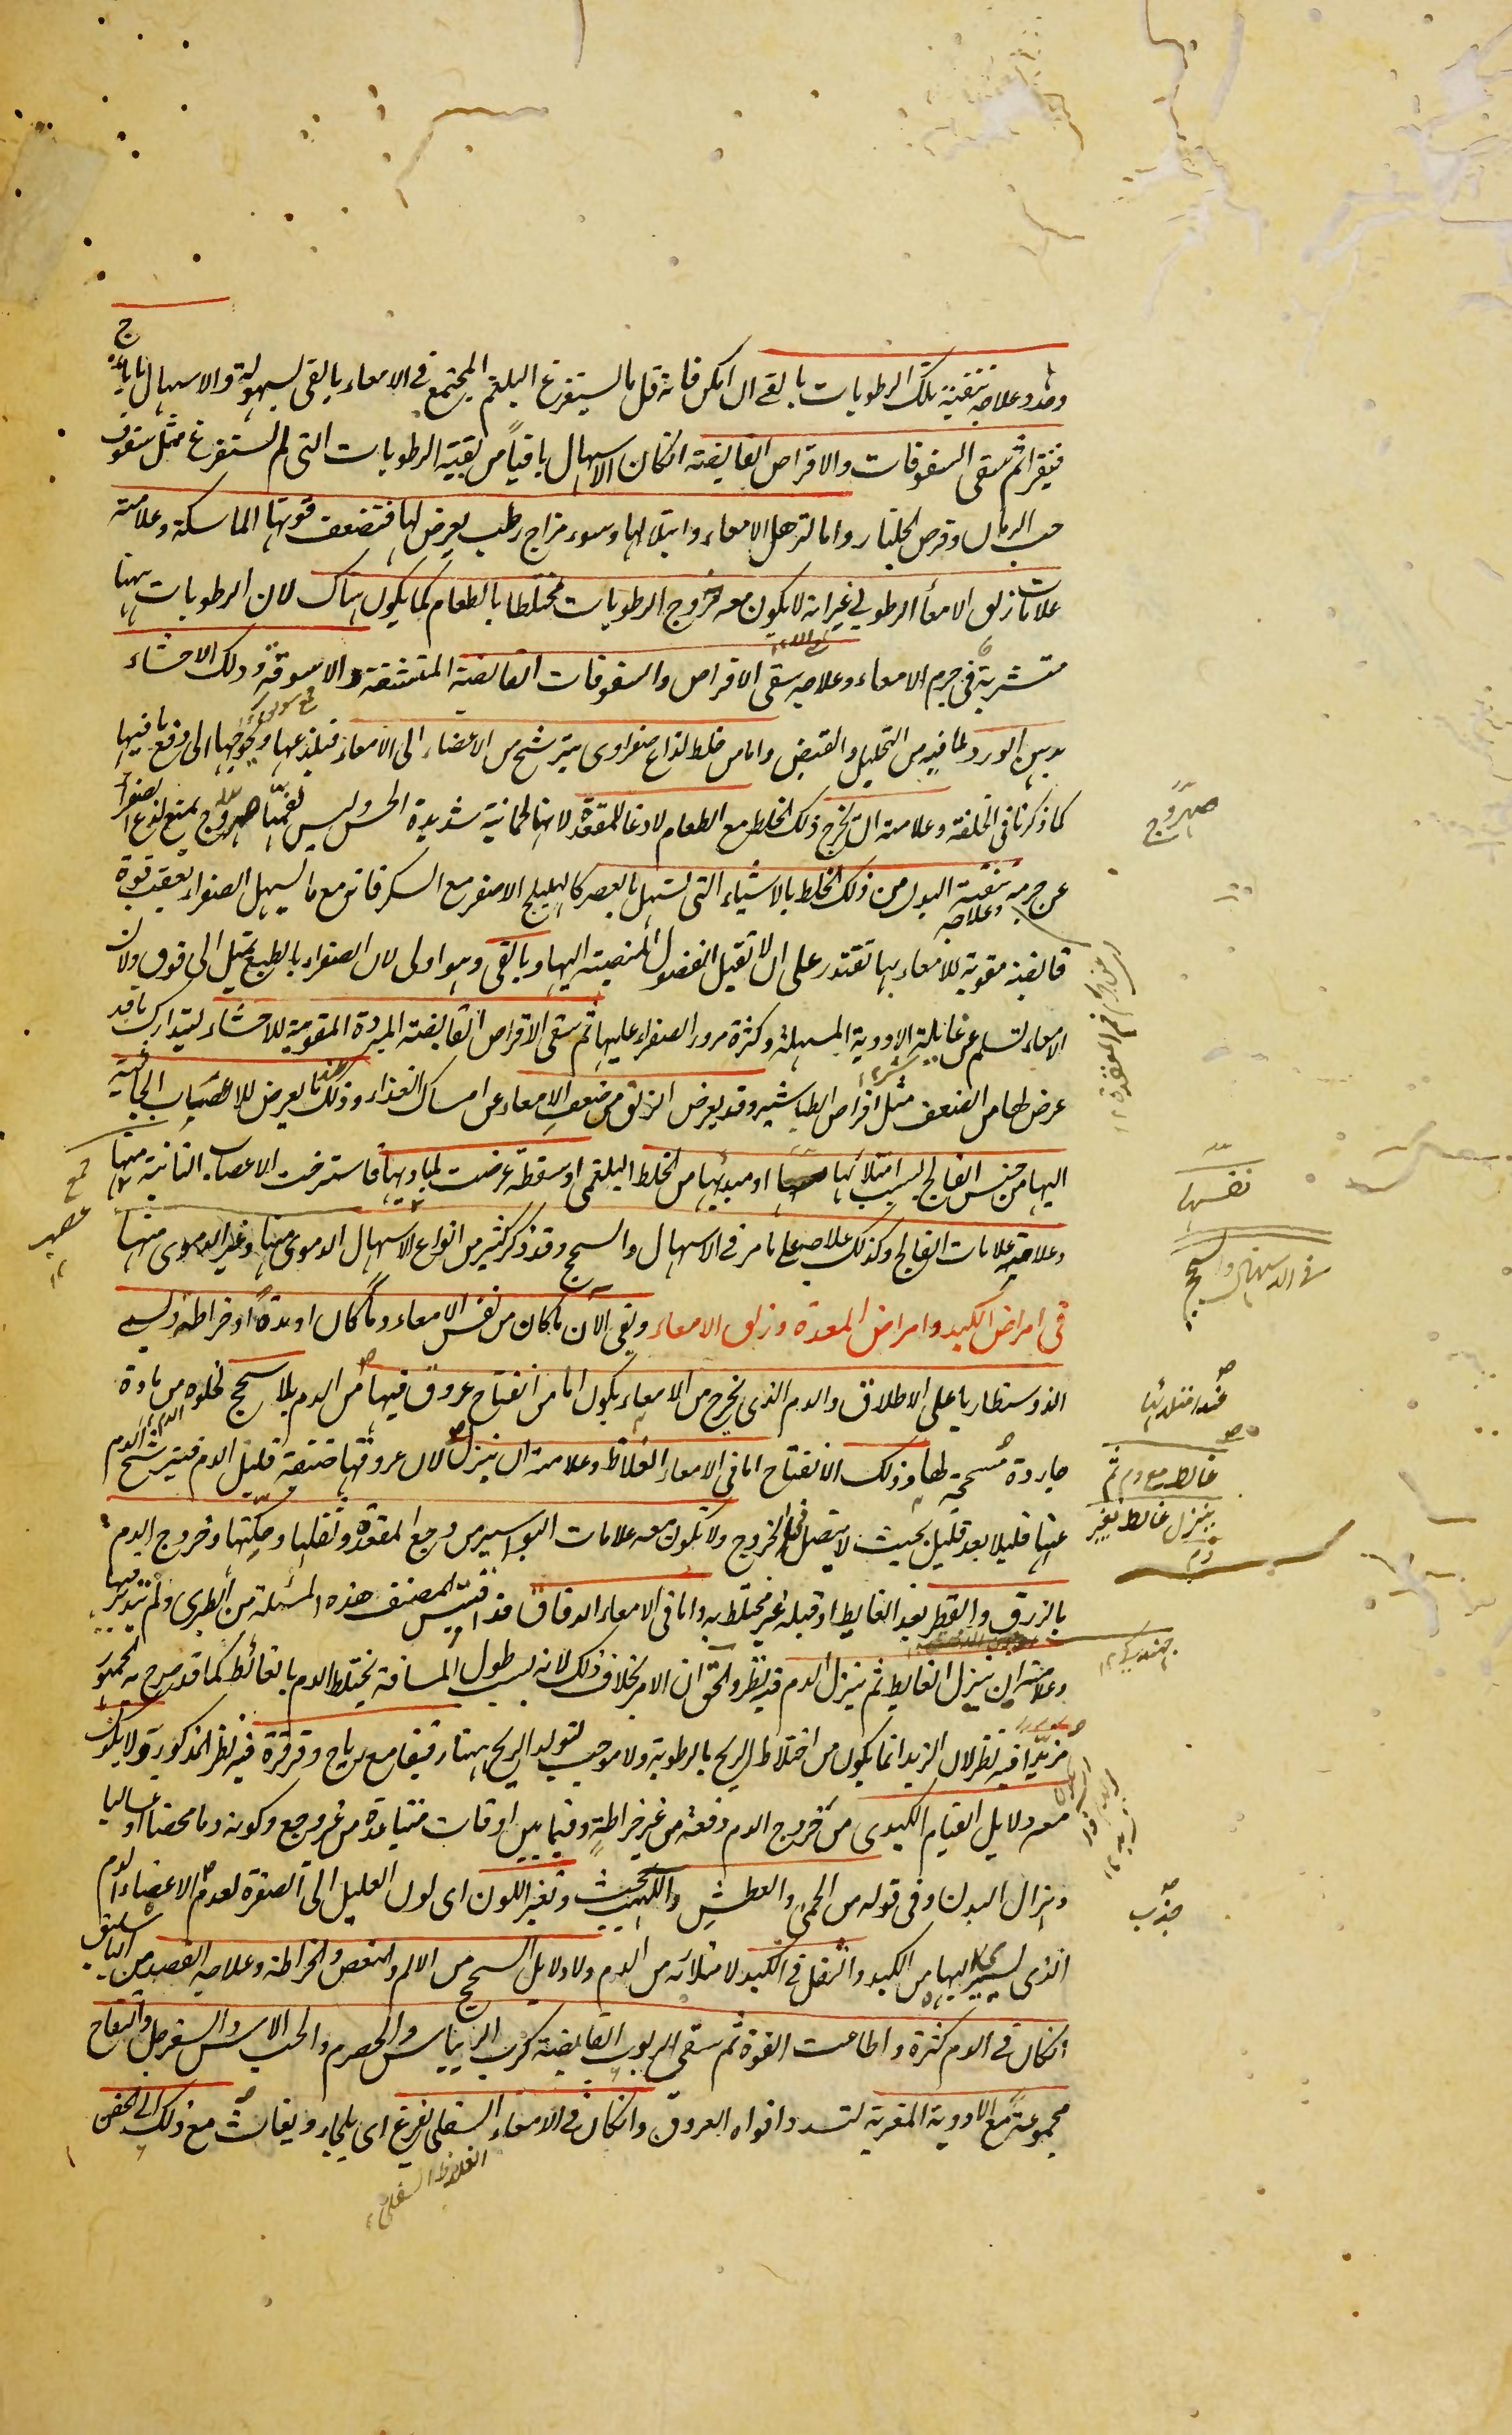 وحده وعلاجه تنقية تلك الرطوبات بالقئ ان امكن فانه قل ما يستفرغ البلغم المجتمع فى الامعاء بالقى بسهولة والاسهال بايارج
فيقرا ثم سقى السفوفات والاقراص القابضة انكان الاسهال باقياً من بقية الرطوبات التى لم تستفرغ مثل سفوف
حب الرمان وقرص الجلنار واما لترهل الامعاء وابتلالها وسوء مزاج رطب يعرض لها فتضعف قوتها الماسكة وعلامته
علامات زلق الامعاء الرطوبى غير انه لا يكون معه خروج الرطوبات مختلطا بالطعام كما يكون هناك لان الرطوبات ههنا
متشربة فى جرم الامعاء وعلاجه سقى الاقراص والسفوفات القابضة المنشفة والاسوقة ودلك الاحشاء
بدهن الورد لما فيه من التحليل والقبض واما من خلط لذاع صفراوى يترشح من الاعضاء الى الامعاء فيلذعها ويحوجها الى دفع ما فيها
كما ذكرنا فى الخلفة وعلامته ان يخرج ذلك الخلط مع الطعام لادغا للمقعدة لانها لحمانية شديدة الحس وليس لفمها صهروج يمنع لذع الصفراء
عن جرمه وعلاجه تنقية البدن من ذلك الخلط بالاشياء التى تسهل بالعصر كالهليلج الاصفر مع السكر فانه مع ما يسهل الصفراء يعقب قوة
قابضة مقوية للامعاء بها تقتدر على ان لا تقبل الفضول المنصبة اليها وبالقى وهو اولى لان الصفراء بالطبع تميل الى فوق ولان
الامعاء تسلم عن غائلة الادوية المسهلة وكثرة مرور الصفراء عليها ثم سقى الاقراص القابضة المبردة المقوية للاحشاء ليتدارك ما قد
عرض لها من الضعف مثل اقراص الطباشير وقد يعرض الزلق من ضعف الامعاء عن امساك الغذاء وذلك لما يعرض للاعصاب الجائية
اليها من جنس الفالج بسبب امتلائها او مبدئها من الخلط البلغمى او سقطة عرضت لمباديها فاسترخت الاعصاب النابتة منها
وعلامته علامات الفالج وكذلك علاجه على ما مر فى الاسهال والسحج وقد ذكر كثير من انواع الاسهال الدموى منها وغير الدموى منها
فى امراض الكبد وامراض المعدة وزلق الامعاء وبقى الآن ما كان من نفس الامعاء دماً كان او مدة او خراطة ويسمى
الذوسنطاريا على الاطلاق والدم الذى يخرج من الامعاء يكون اما من انفتاح عروق فيها من الدم بلا سحج لخلوه من مادة
حادة مسحجة لها وذلك الانفتاح اما فى الامعاء الغلاظ وعلامته ان ينزل لان عروقها ضيقة قليل الدم فيترشح الدم
عنها قليلا بعد قليل بحيث لا يتصل فى الخروج ولا تكون معه علامات البواسير من وجع المقعدة وثقلها وحكتها وخروج الدم
بالزرق والقطر بعد الغايط او قبله غير مختلط به واما فى الامعاء الدقاق فقد اقتبس المصنف هذه المسئلة من الطبرى ولم يتدبر فيها
وعلامته ان ينزل الغايط ثم ينزل الدم فيه نظر والحق ان الامر بخلاف ذلك لانه بسبب طول المسافة يختلط الدم بالغائط كما قد صرح به الجمهور
مزبداً فيه نظر لان الزبد انما يكون من اختلاط الريح بالرطوبة ولا موجب لتولد الريح ههنا رقيقا مع رياح وقرقرة فيه نظر المذكور ولا يكون
معه دلايل القيام الكبدى من خروج الدم دفعة من غير خراطة وفيما بين اوقات متباعدة من غير وجع وكونه دما محضا او غساليا
وهزال البدن وفى قوله من الحمى والعطش واللهيب وتغير اللون اى لون العليل الى الصفرة لعدم الاعضاء الدم
الذى يسير اليها من الكبد والثقل فى الكبد لامتلائه من الدم ولا دلايل السحج من الالم والمغص والخراطة وعلاجه الفصد من الباسليق
انكان فى الدم كثرة واطاعت القوة ثم سقى الربوب القابضة كرب الريباس والحصرم والحب الاس والسفرجل والتفاح
مجموعة مع الادوية المغرية لتسد افواه العروق وانكان فى الامعاء السفلى يفزع اى يلجا ويغاث مع ذلك الى الحقن
الغلاظ السفلى
صهروج
نفسها
فى الاسهال والسحج
عند امتلائها
غائط مع دم ثم
ينزل غائط بغير
دم
جذب